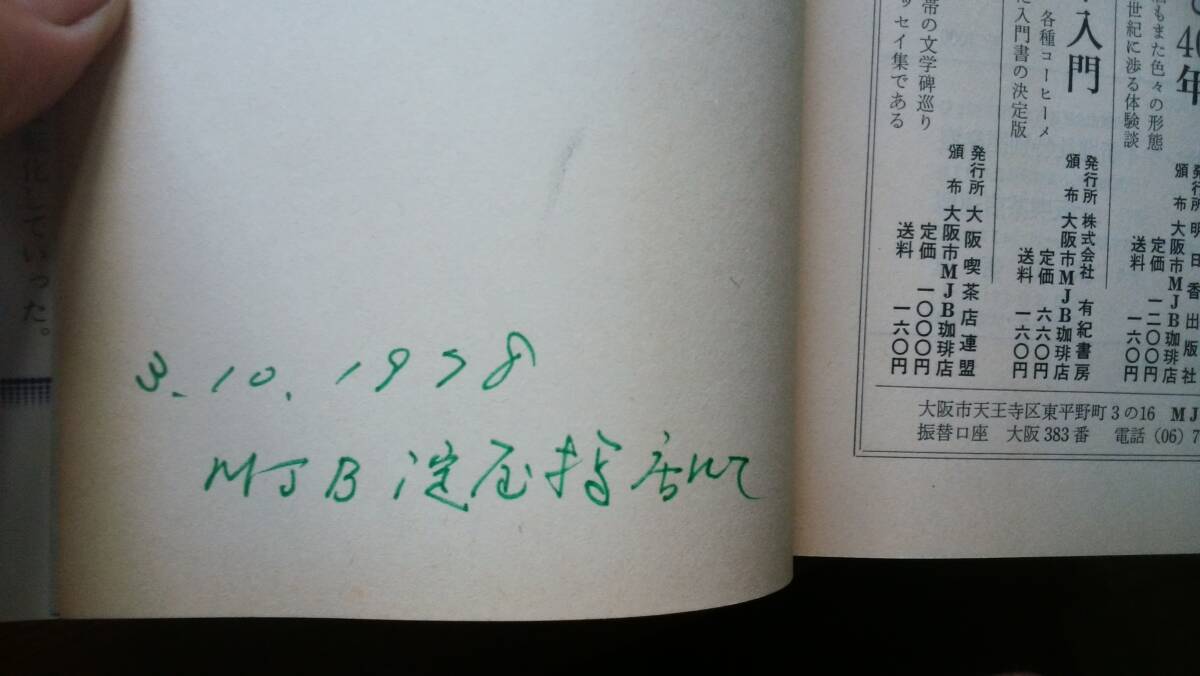 化していった。
3.10.1978
MJB 淀屋橋店にて
40年
もまた色々の形態
世紀に渉る体験談
発行所 明日香出版社
頒布 大阪市MJB珈琲店
定価 一二〇〇円
送料 一六〇円
入門
各種コーヒーメ
入門書の決定版
発行所 株式会社 有紀書房
頒布 大阪市MJB珈琲店
定価 六六〇円
送料 一六〇円
帯の文学碑巡り
ッセイ集である
発行所 大阪喫茶店連盟
頒布 大阪市MJB珈琲店
定価 一〇〇〇円
送料 一六〇円
大阪市天王寺区東平野町3の16 MJ
振替口座 大阪383番 電話(06)7